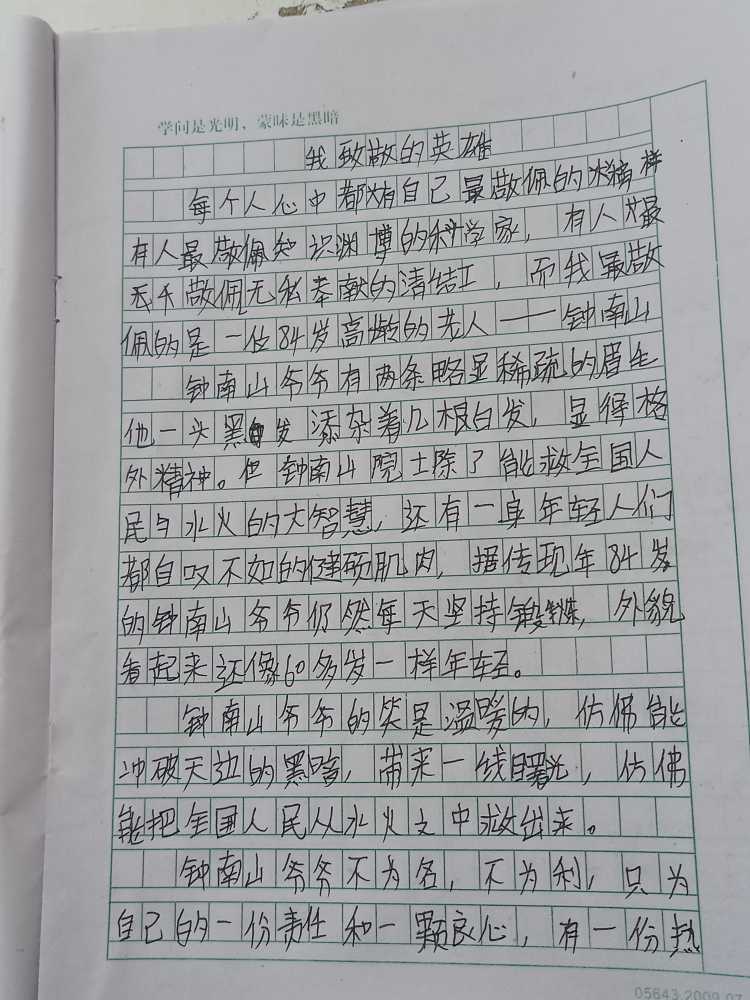 学问是光明、蒙昧是黑暗
我致敬的英雄
每个人心中都有自己最敬佩的榜样
有人最敬佩知识渊博的科学家，有人最
敬佩无私奉献的清洁工，而我最敬
佩的是一位84岁高龄的老人——钟南山
钟南山爷爷有两条略显稀疏的眉毛
他一头黑发添杂着几根白发，显得格
外精神。但钟南山院士除了能救全国人
民与水火的大智慧，还有一身年轻人们
都自叹不如的健硕肌肉，据传现年84岁
的钟南山爷爷仍然每天坚持锻炼，外貌
看起来还像60多岁一样年轻。
钟南山爷爷的笑是温暖的，仿佛能
冲破天边的黑暗，带来一线曙光，仿佛
能把全国人民从水火之中救出来。
钟南山爷爷不为名，不为利，只为
自己的一份责任和一颗良心，有一份热